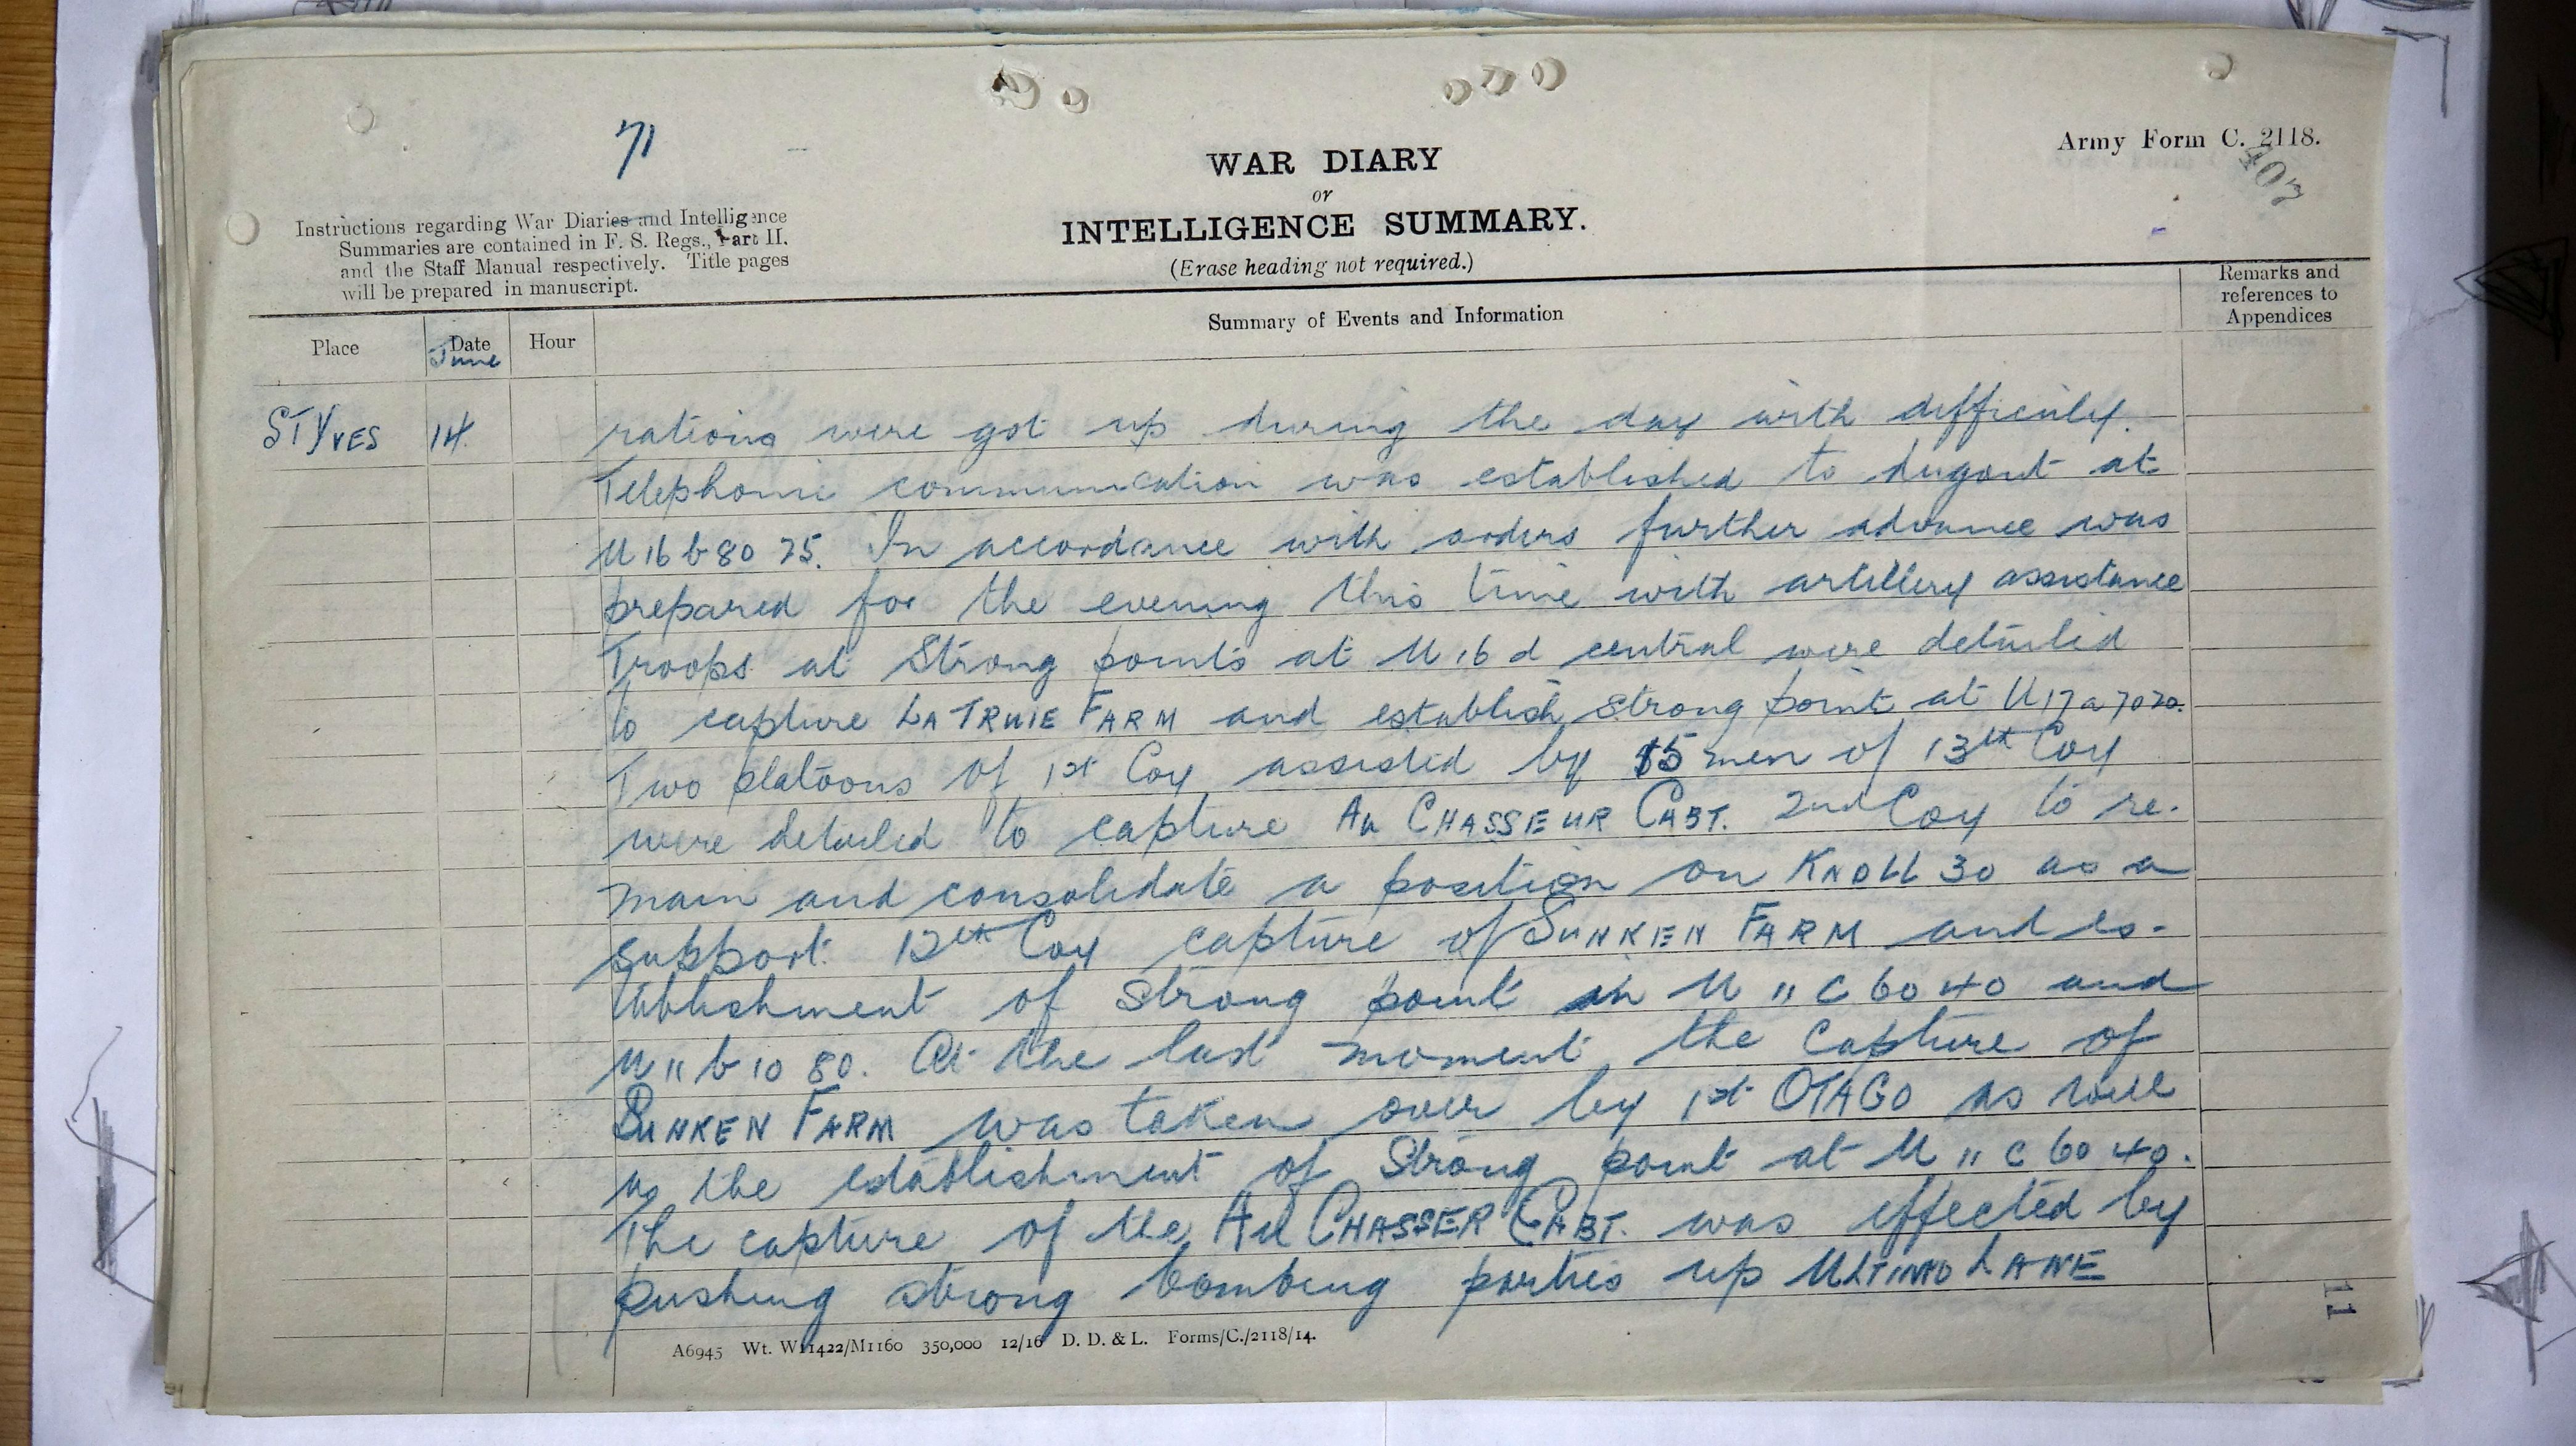 71
WAR DIARY
or
INTELLIGENCE SUMMARY.
(Erase heading not required.)
Army Form C. 2118.
402
Instructions regarding War Diaries and Intelligence
Summaries are contained in F. S. Regs., Part II.
and the Staff Manual respectively. Title pages
will be prepared in manuscript.
Place
Date
June
Hour
Summary of Events and Information
Remarks and
references to
Appendices
ST YVES 14. rations were got up during the day with difficulty.
Telephonic communication was established to dugout at
U 16 b 80 75. In accordance with orders further advance was
prepared for the evening this time with artillery assistance
Troops at Strong points at U 16 d central were detailed
to capture LA TRUIE FARM and establish strong point at U 17 a 70 20.
Two platoons of 1st Coy assisted by 15 men of 13th Coy
were detailed to capture AU CHASSEUR CABT. 2nd Coy to re-
main and consolidate a position on KNOLL 30 as a
support. 12th Coy capture of SUNKEN FARM and es-
tablishment of strong point in U 11 c 60 40 and
U 11 b 10 80. At the last moment the capture of
SUNKEN FARM was taken over by 1st OTAGO as well
as the establishment of Strong point at U 11 c 60 40.
The capture of the AU CHASSER CABT. was effected by
pushing strong bombing parties up ULTIMO LANE
A6945 Wt. W11422/M1160 350,000 12/16 D. D. & L. Forms/C./2118/14.
11